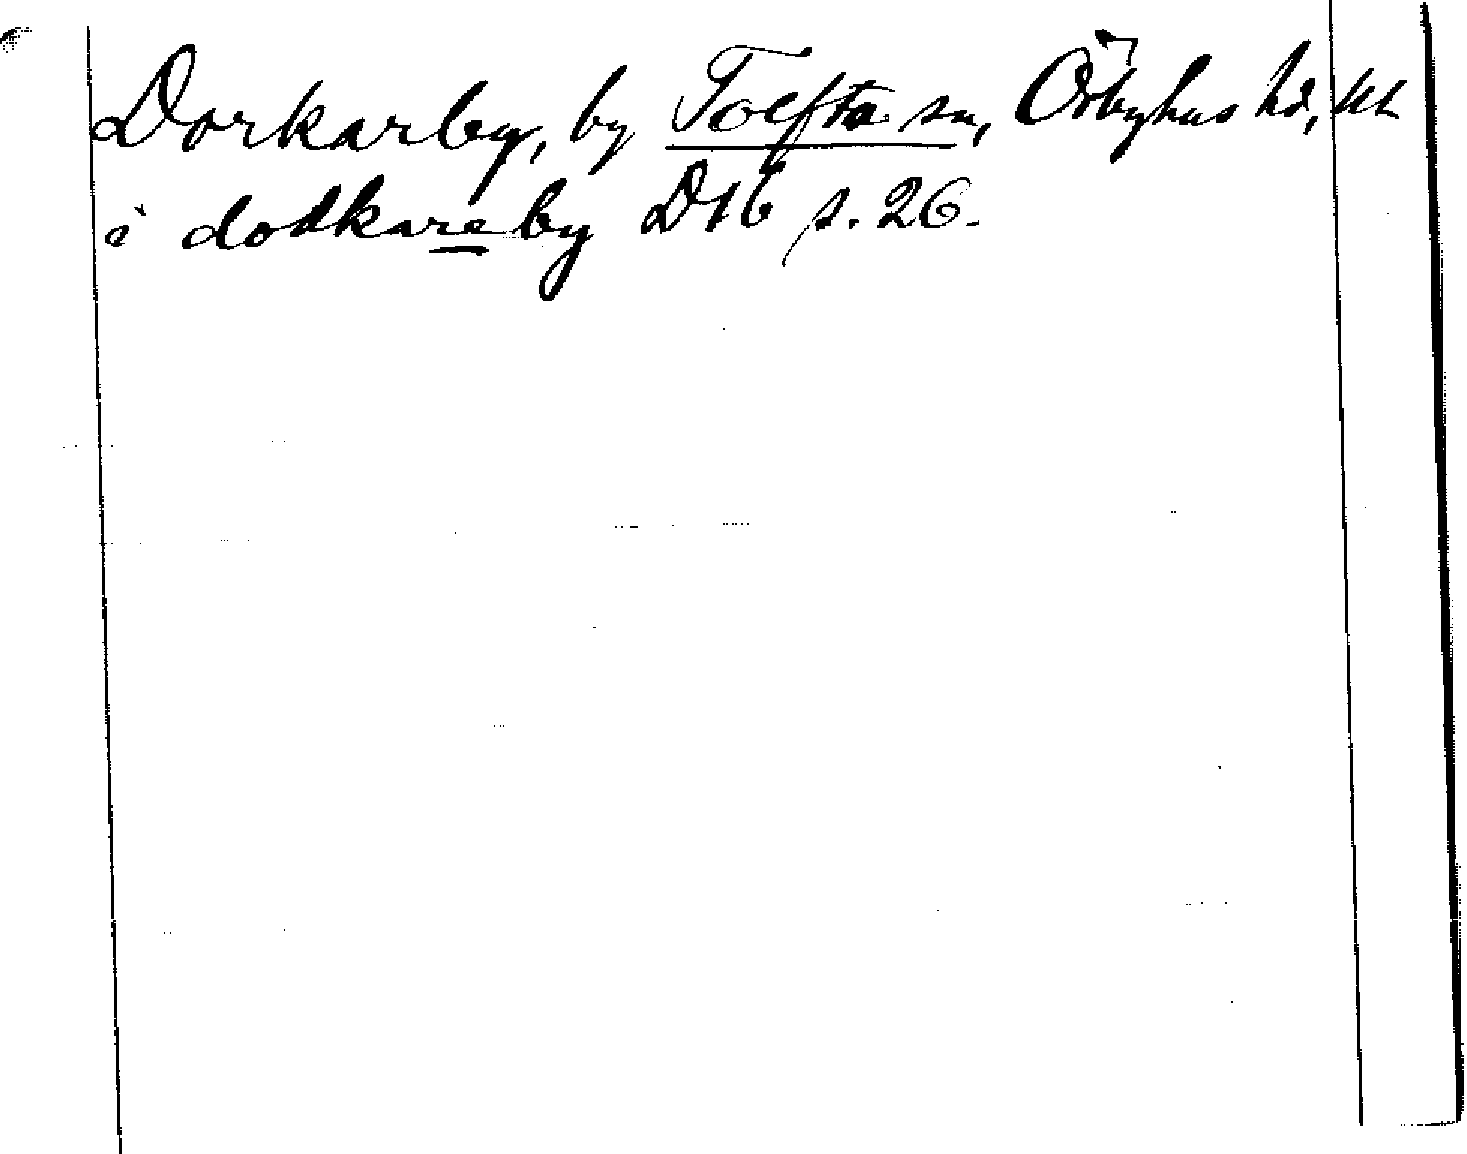 Dorkarby, by Tolfta sn, Örbyhus hd, Ul.
i dodkareby D16 s. 26.